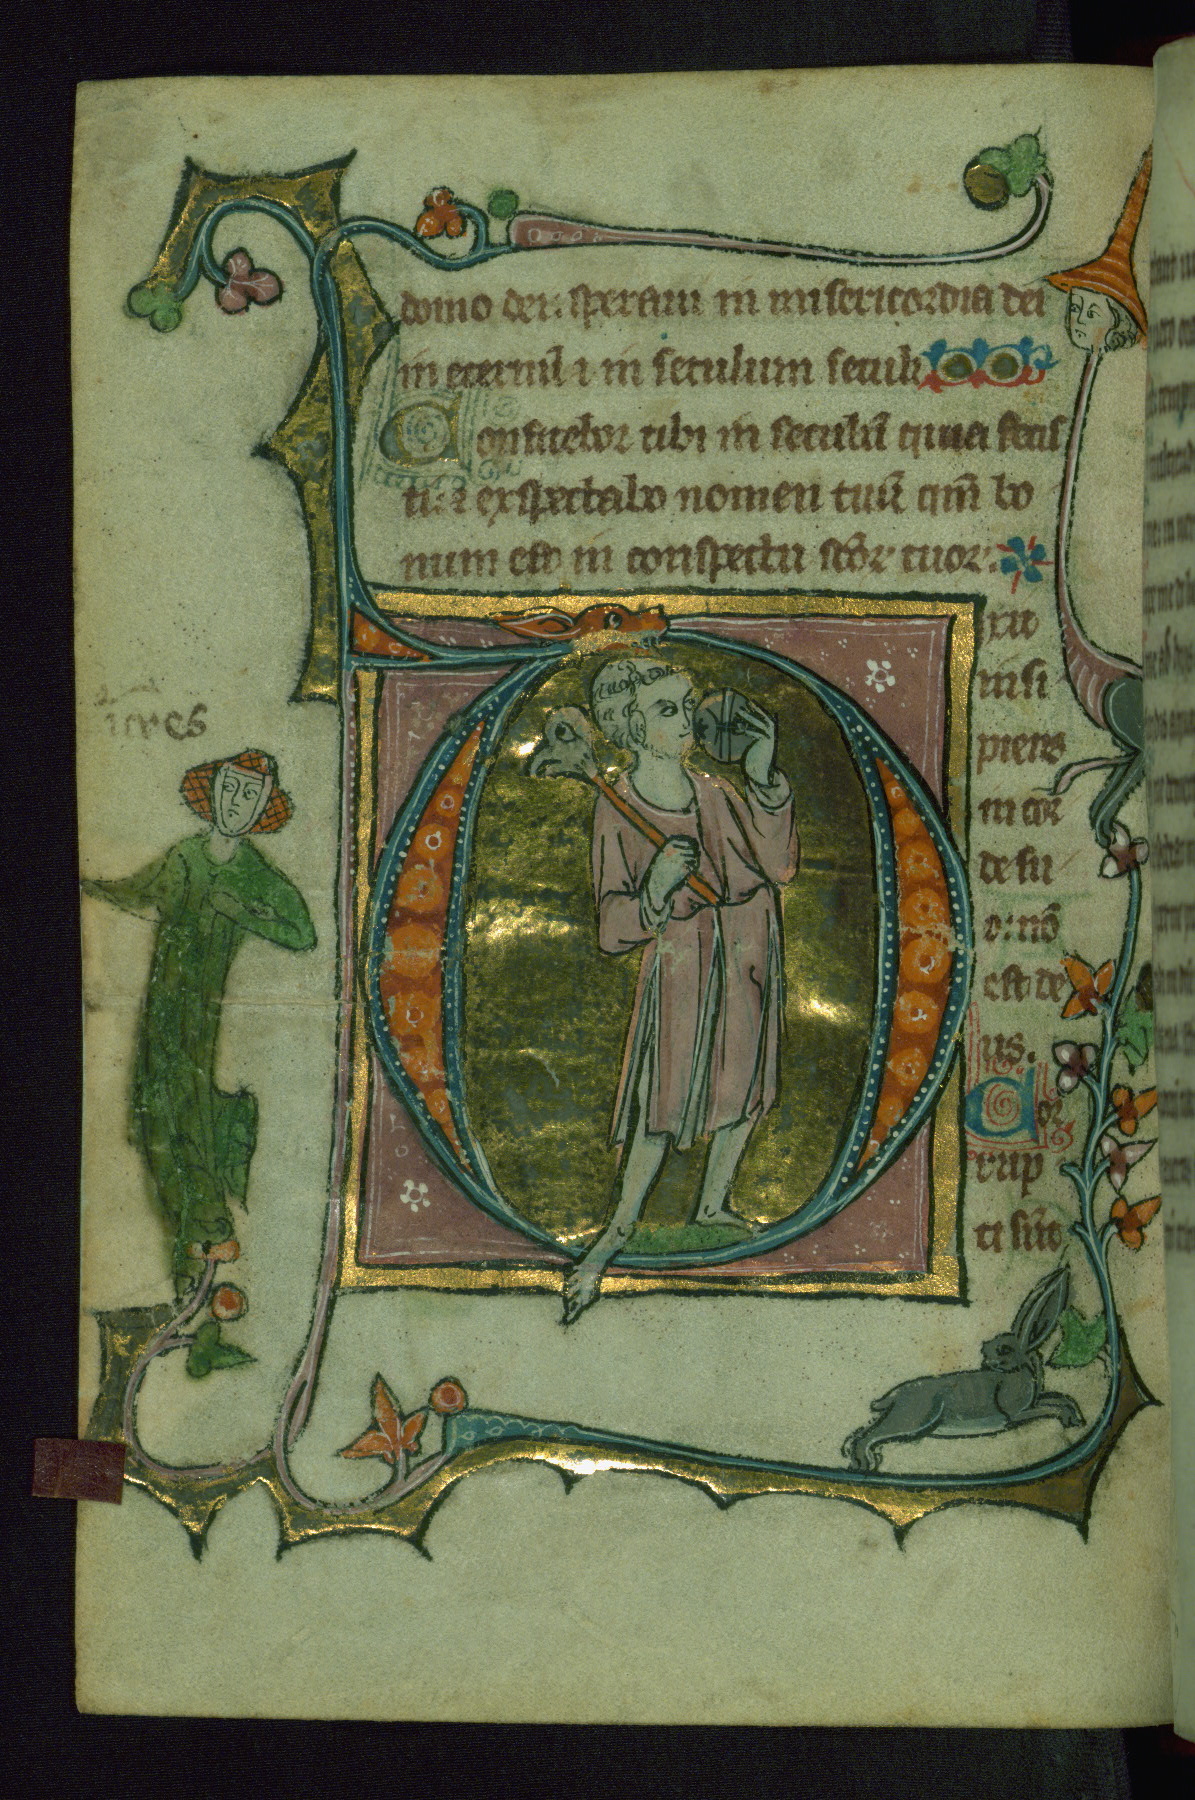 domo dei: speraui in misericordia dei
in eternu᷑ ⁊ in seculum seculi
Confitebor tibi in seculu᷑ quia fecis
ti: ⁊ exspectabo nomen tuu᷑ qm̄ bo
num est in conspectu sc̄or tuor.
Dixit
insi
piens
in cor
de su
o: nō
est de
us.
Cor
rup
ti sūt